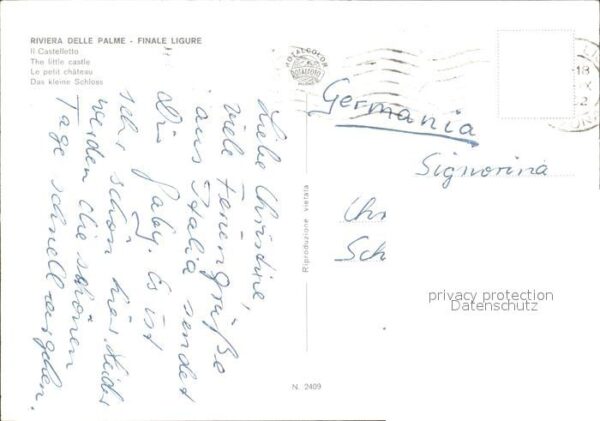 RIVIERA DELLE PALME - FINALE LIGURE
Il Castelletto
The little castle
Le petit château
Das kleine Schloss
Liebe Christine,
viele Feriengrüße
aus Italia sendet
Dir Gaby. Es ist
sehr schön hier. Leider
werden die schönen
Tage schnell vergehen.
ROTALCOLOR
ROTALFOTO
Riproduzione vietata
N. 2409
18
Germania
Signorina
Chr
Sch
privacy protection
Datenschutz